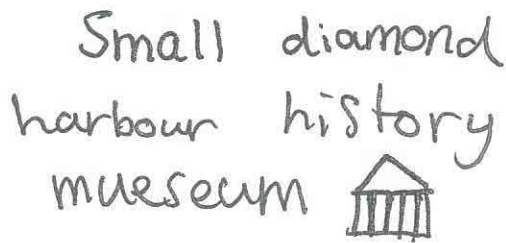 Small diamond
harbour history
mueseum